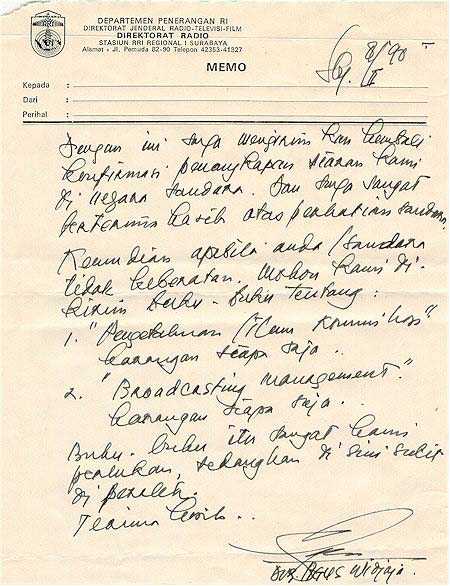 DEPARTEMEN PENERANGAN RI
DIREKTORAT JENDERAL RADIO-TELEVISI-FILM
DIREKTORAT RADIO
STASIUN RRI REGIONAL I SURABAYA
Alamat : Jl. Pemuda 82-90 Telepon 42353-41327
MEMO
Sby. 8/90
II
Kepada :
Dari :
Perihal :
Dengan ini saya mengirimkan kembali
konfirmasi penangkapan siaran kami
di negara saudara. Dan saya sangat
berterima kasih atas perhatian saudara.
Kemudian apabila anda/saudara
tidak keberatan. Mohon kami di-
kirim buku-buku tentang :
1. "Pengetahuan / Ilmu Komunikasi"
karangan siapa saja..
2. "Broadcasting management."
karangan siapa saja..
Buku-buku itu sangat kami
perlukan, sedangkan di sini sulit
di peroleh.
Terima kasih..
Drs. Agus Widjaja.